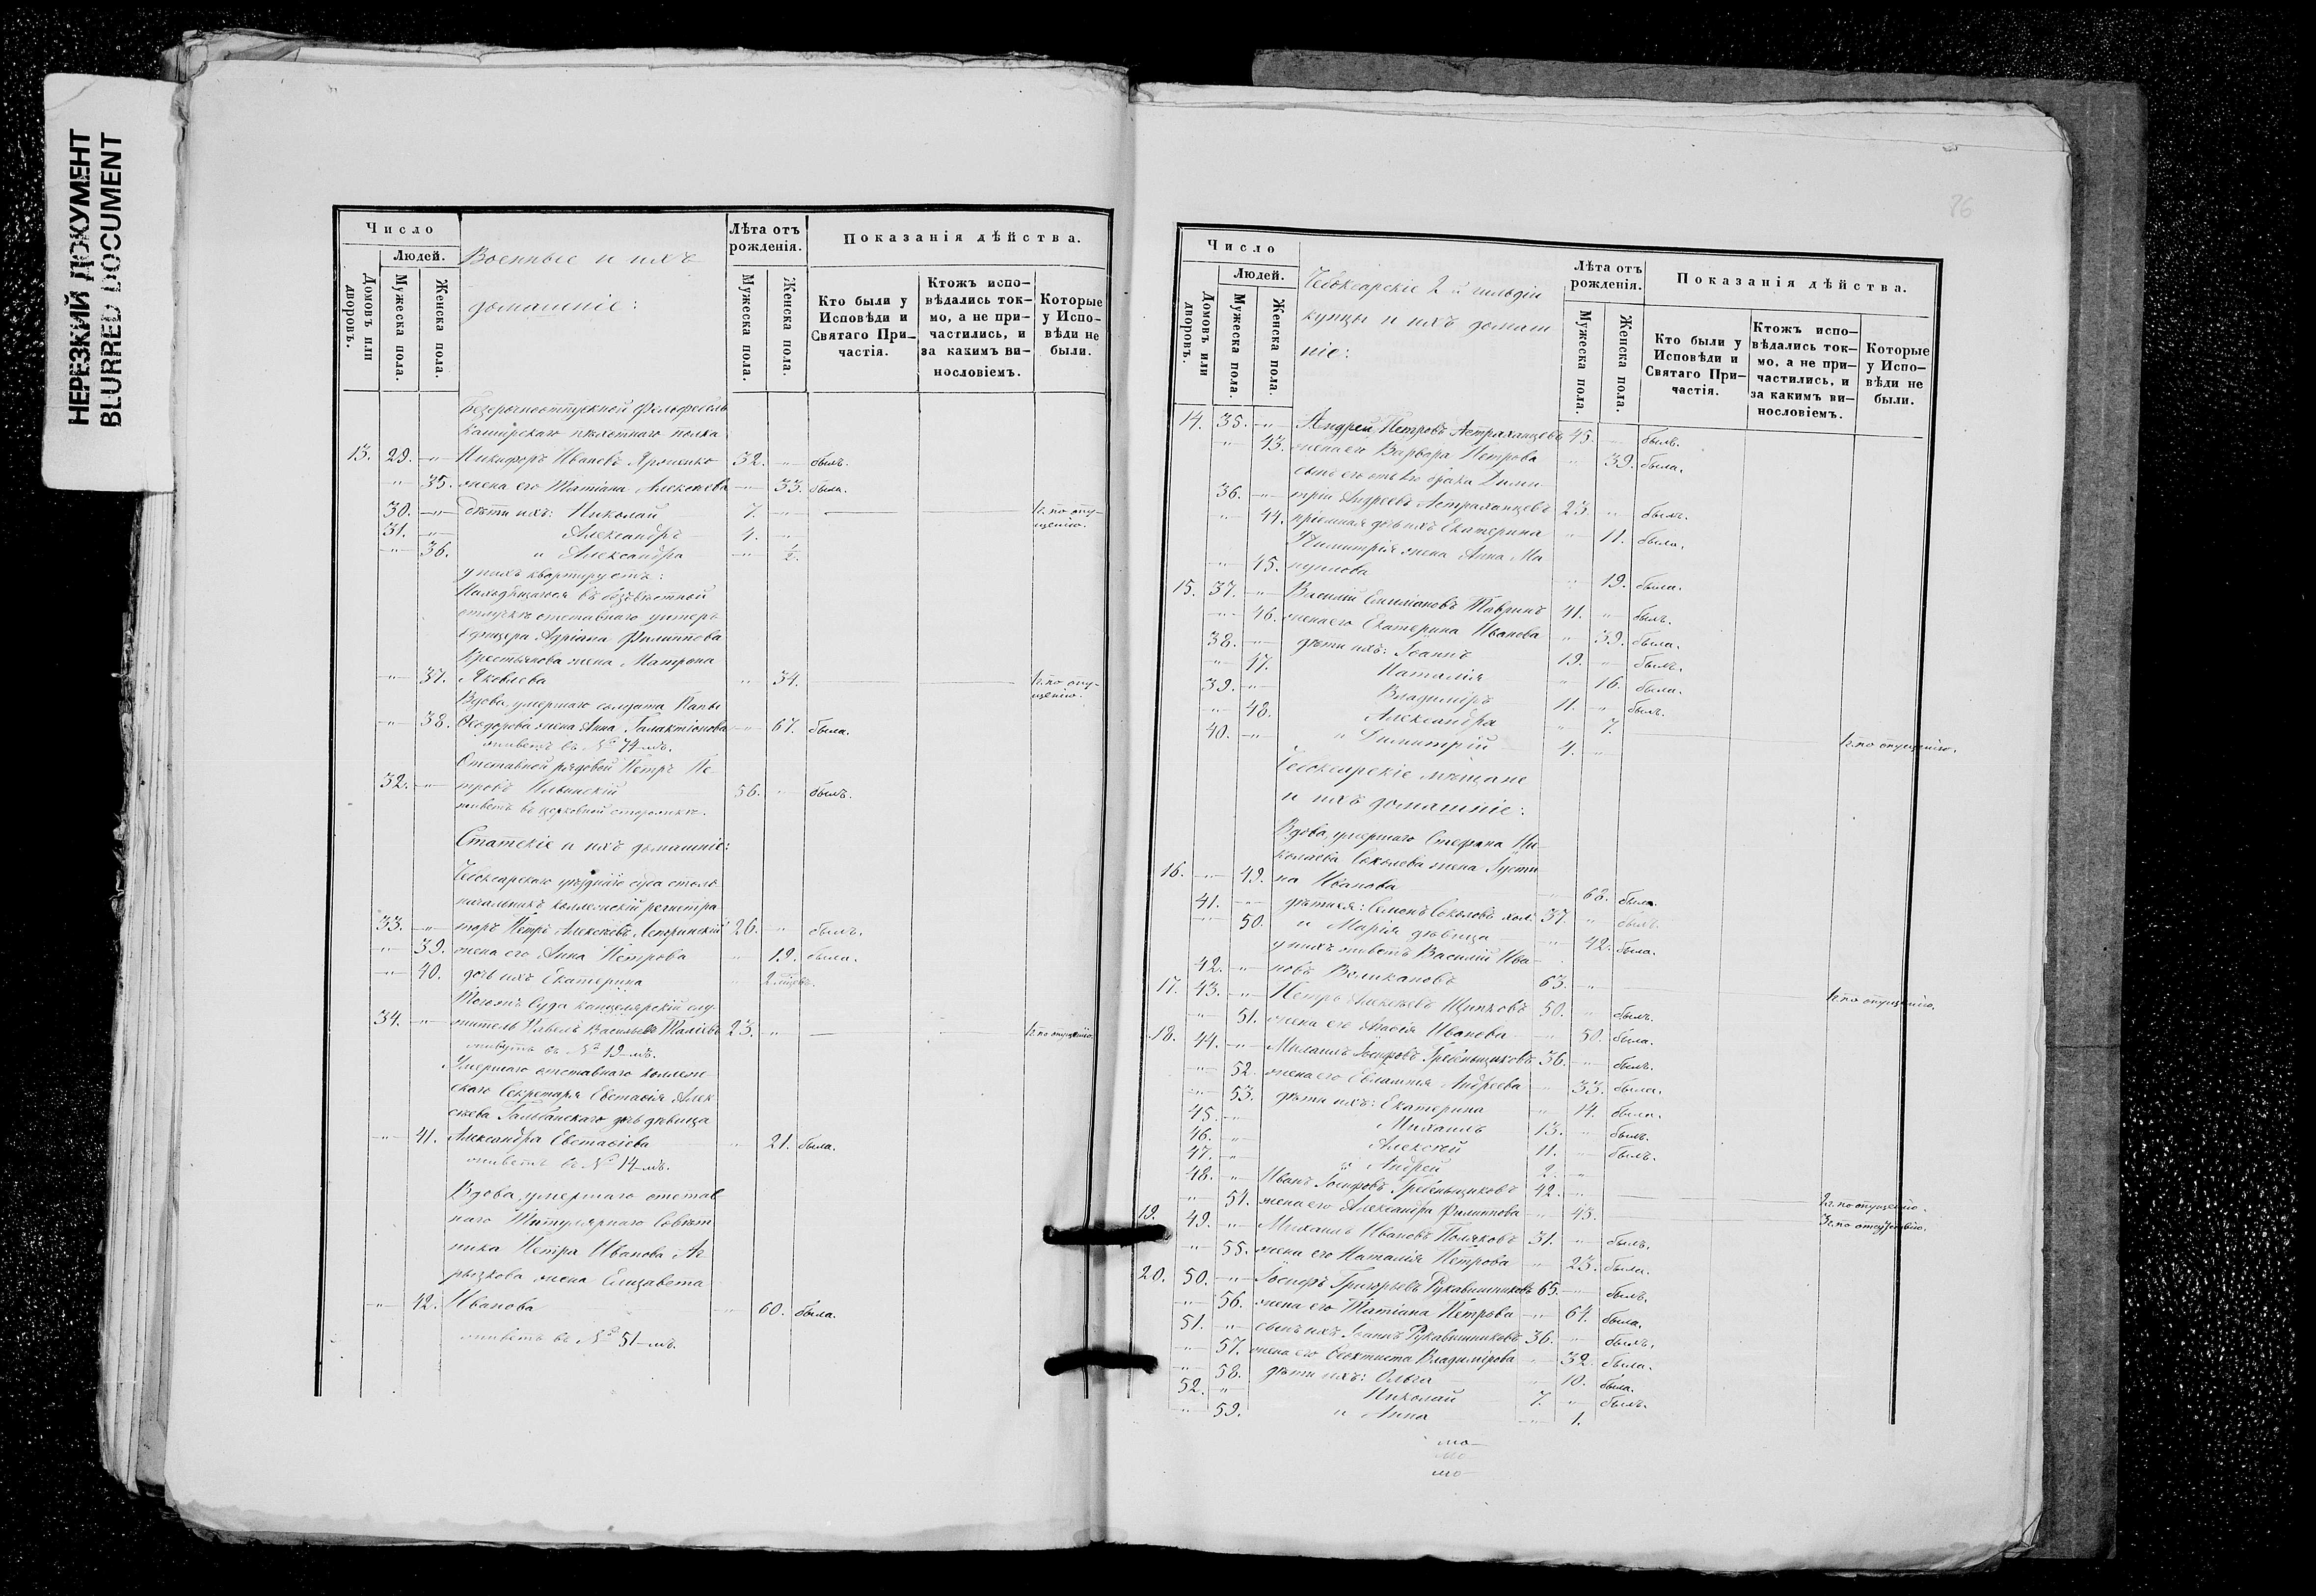 НЕРЕЗКИЙ ДОКУМЕНТ
BLURRED DOCUMENT
Число
Людей.
Домовъ или дворовъ.
Мужеска пола.
Женска пола.
Военные и ихъ
домашніе:
Лѣта отъ рожденія.
Мужеска пола.
Женска пола.
Показанія дѣйства.
Кто были у Исповѣди и Святаго При-частія.
Ктожъ испо-вѣдались ток-мо, а не при-частились, и за какимъ ви-нословіемъ.
Которые у Испо-вѣди не были.
Безсрочноотпускной Фельдфебель
пѣхотнаго полка
13. 29. -"- Никифоръ Ивановъ 32. -"- былъ.
-"- 35. жена его Татіана Алексѣева -"- 33. была.
30. -"- дѣти ихъ: Николай 7. -"- 1 г. по опу-щенію.
31. -"- Александръ 4. -"-
-"- 36. и Александра -"- 1/2.
у нихъ квартируетъ:
Находящагося въ
отпускѣ отставнаго унтеръ
офицера Адріана Филиппова
жена Матрона
-"- 37. Яковлева " 34. 1 г. по опу-щенію.
Вдова, умершаго солдата
-"- 38. Ѳеодорова жена Анна Галактіонова -"- 67. была.
живетъ въ № 74-мъ.
Отставной рядовой Петръ Пе-
32. -"- тровъ Ильинскій 56. " былъ.
живетъ въ церковной сторожкѣ.
Статскіе и ихъ домашніе:
Чебоксарскаго уѣзднаго суда столо-
начальникъ коллежскій регистра-
33. -"- торъ Петръ Алексѣевъ 26. " былъ.
-"- 39. жена его Анна Петрова " 19. была.
-"- 40. дочь ихъ Екатерина " 2 мѣсяц.
Тогожъ Суда канцелярскій слу-
34. -"- житель Павелъ Васильевъ 23. " 1 г. по опущенію.
живутъ въ № 19-мъ.
Умершаго отставнаго коллеж-
скаго Секретаря Евстафія Алек-
сѣева дочь дѣвица
-"- 41. Александра Евстафіева " 21. была.
живетъ въ № 14-мъ.
Вдова, умершаго отстав-
наго Титулярнаго Совѣт-
ника Петра Иванова Аг-
рызкова жена Елизавета
-"- 42. Иванова " 60. была.
живетъ въ № 51-мъ.
86
Число
Людей.
Домовъ или дворовъ.
Мужеска пола.
Женска пола.
Чебоксарскіе 2-й гильдіи
купцы и ихъ домаш
ніе:
Лѣта отъ рожденія.
Мужеска пола.
Женска пола.
Показанія дѣйства.
Кто были у Исповѣди и Святаго При-частія.
Ктожъ испо-вѣдались ток-мо, а не при-частились, и за какимъ ви-нословіемъ.
Которые у Испо-вѣди не были.
14. 35. -"- Андрей Петровъ Астраханцевъ 45. " былъ.
-"- 43. жена его Варвара Петрова " 39. была.
сынъ его отъ 1го брака Дими-
36. -"- трій Андреевъ Астраханцевъ 23. " былъ.
" 44. пріемная дочь ихъ Екатерина " 11. была.
Димитрія жена Анна Ма
-"- 45. нуилова " 19. была.
15. 37. -"- Василій Емиліановъ Тавринъ 41. " былъ.
-"- 46. жена его Екатерина Иванова " 39. была.
38. -"- дѣти ихъ: Іоаннъ 19. " былъ.
-"- 47. Наталія " 16. была.
39. -"- Владиміръ 11. " былъ.
-"- 48. Александра " 7.
40. -"- и Димитрій 4. " 1 г. по опущенію.
Чебоксарскіе мѣщане
и ихъ домашніе:
Вдова, умершаго Стефана Ни-
колаева Соколова жена Іусти
16. -"- 49. на Иванова " 68. была.
41. -"- дѣти ея: Семенъ Соколовъ хол. 37. " былъ.
-"- 50. и Марія дѣвица " 42. была.
у нихъ живетъ Василій Ива-
42. -"- новъ Великановъ 63. " 1 г. по опущенію.
17. 43. -"- Петръ Алексѣевъ Щипковъ 50. " былъ.
-"- 51. жена его Агафія Иванова " 50. была.
18. 44. -"- Михаилъ Іосифовъ Гребеньщиковъ 36. -"- былъ.
-"- 52. жена его Евлампія Андреева " 33. была.
-"- 53. дѣти ихъ: Екатерина " 14. была.
45. -"- Михаилъ 13. " былъ.
46. -"- Алексѣй 11. " былъ.
47. -"- и Андрей 2. "
48. -"- Иванъ Іосифовъ Гребеньщиковъ 42. " 2 г. по опущенію.
-"- 54. жена его Александра Филиппова " 43. 3 г. по отсутствію.
19. 49. -"- Михаилъ Ивановъ Поляковъ 31. " былъ.
-"- 55. жена его Наталія Петрова " 23. была.
20. 50. -"- Іосифъ Григорьевъ Рукавишниковъ 65. -"- былъ.
-"- 56. жена его Татіана Петрова -"- 64. была.
51. -"- сынъ ихъ Іоаннъ Рукавишниковъ 36. -"- былъ.
-"- 57. жена его Ѳеоктиста Владимірова " 32. была.
-"- 58. дѣти ихъ: Ольга " 10. была.
52. -"- Николай 7. " былъ.
-"- 59. и Анна -"- 1.